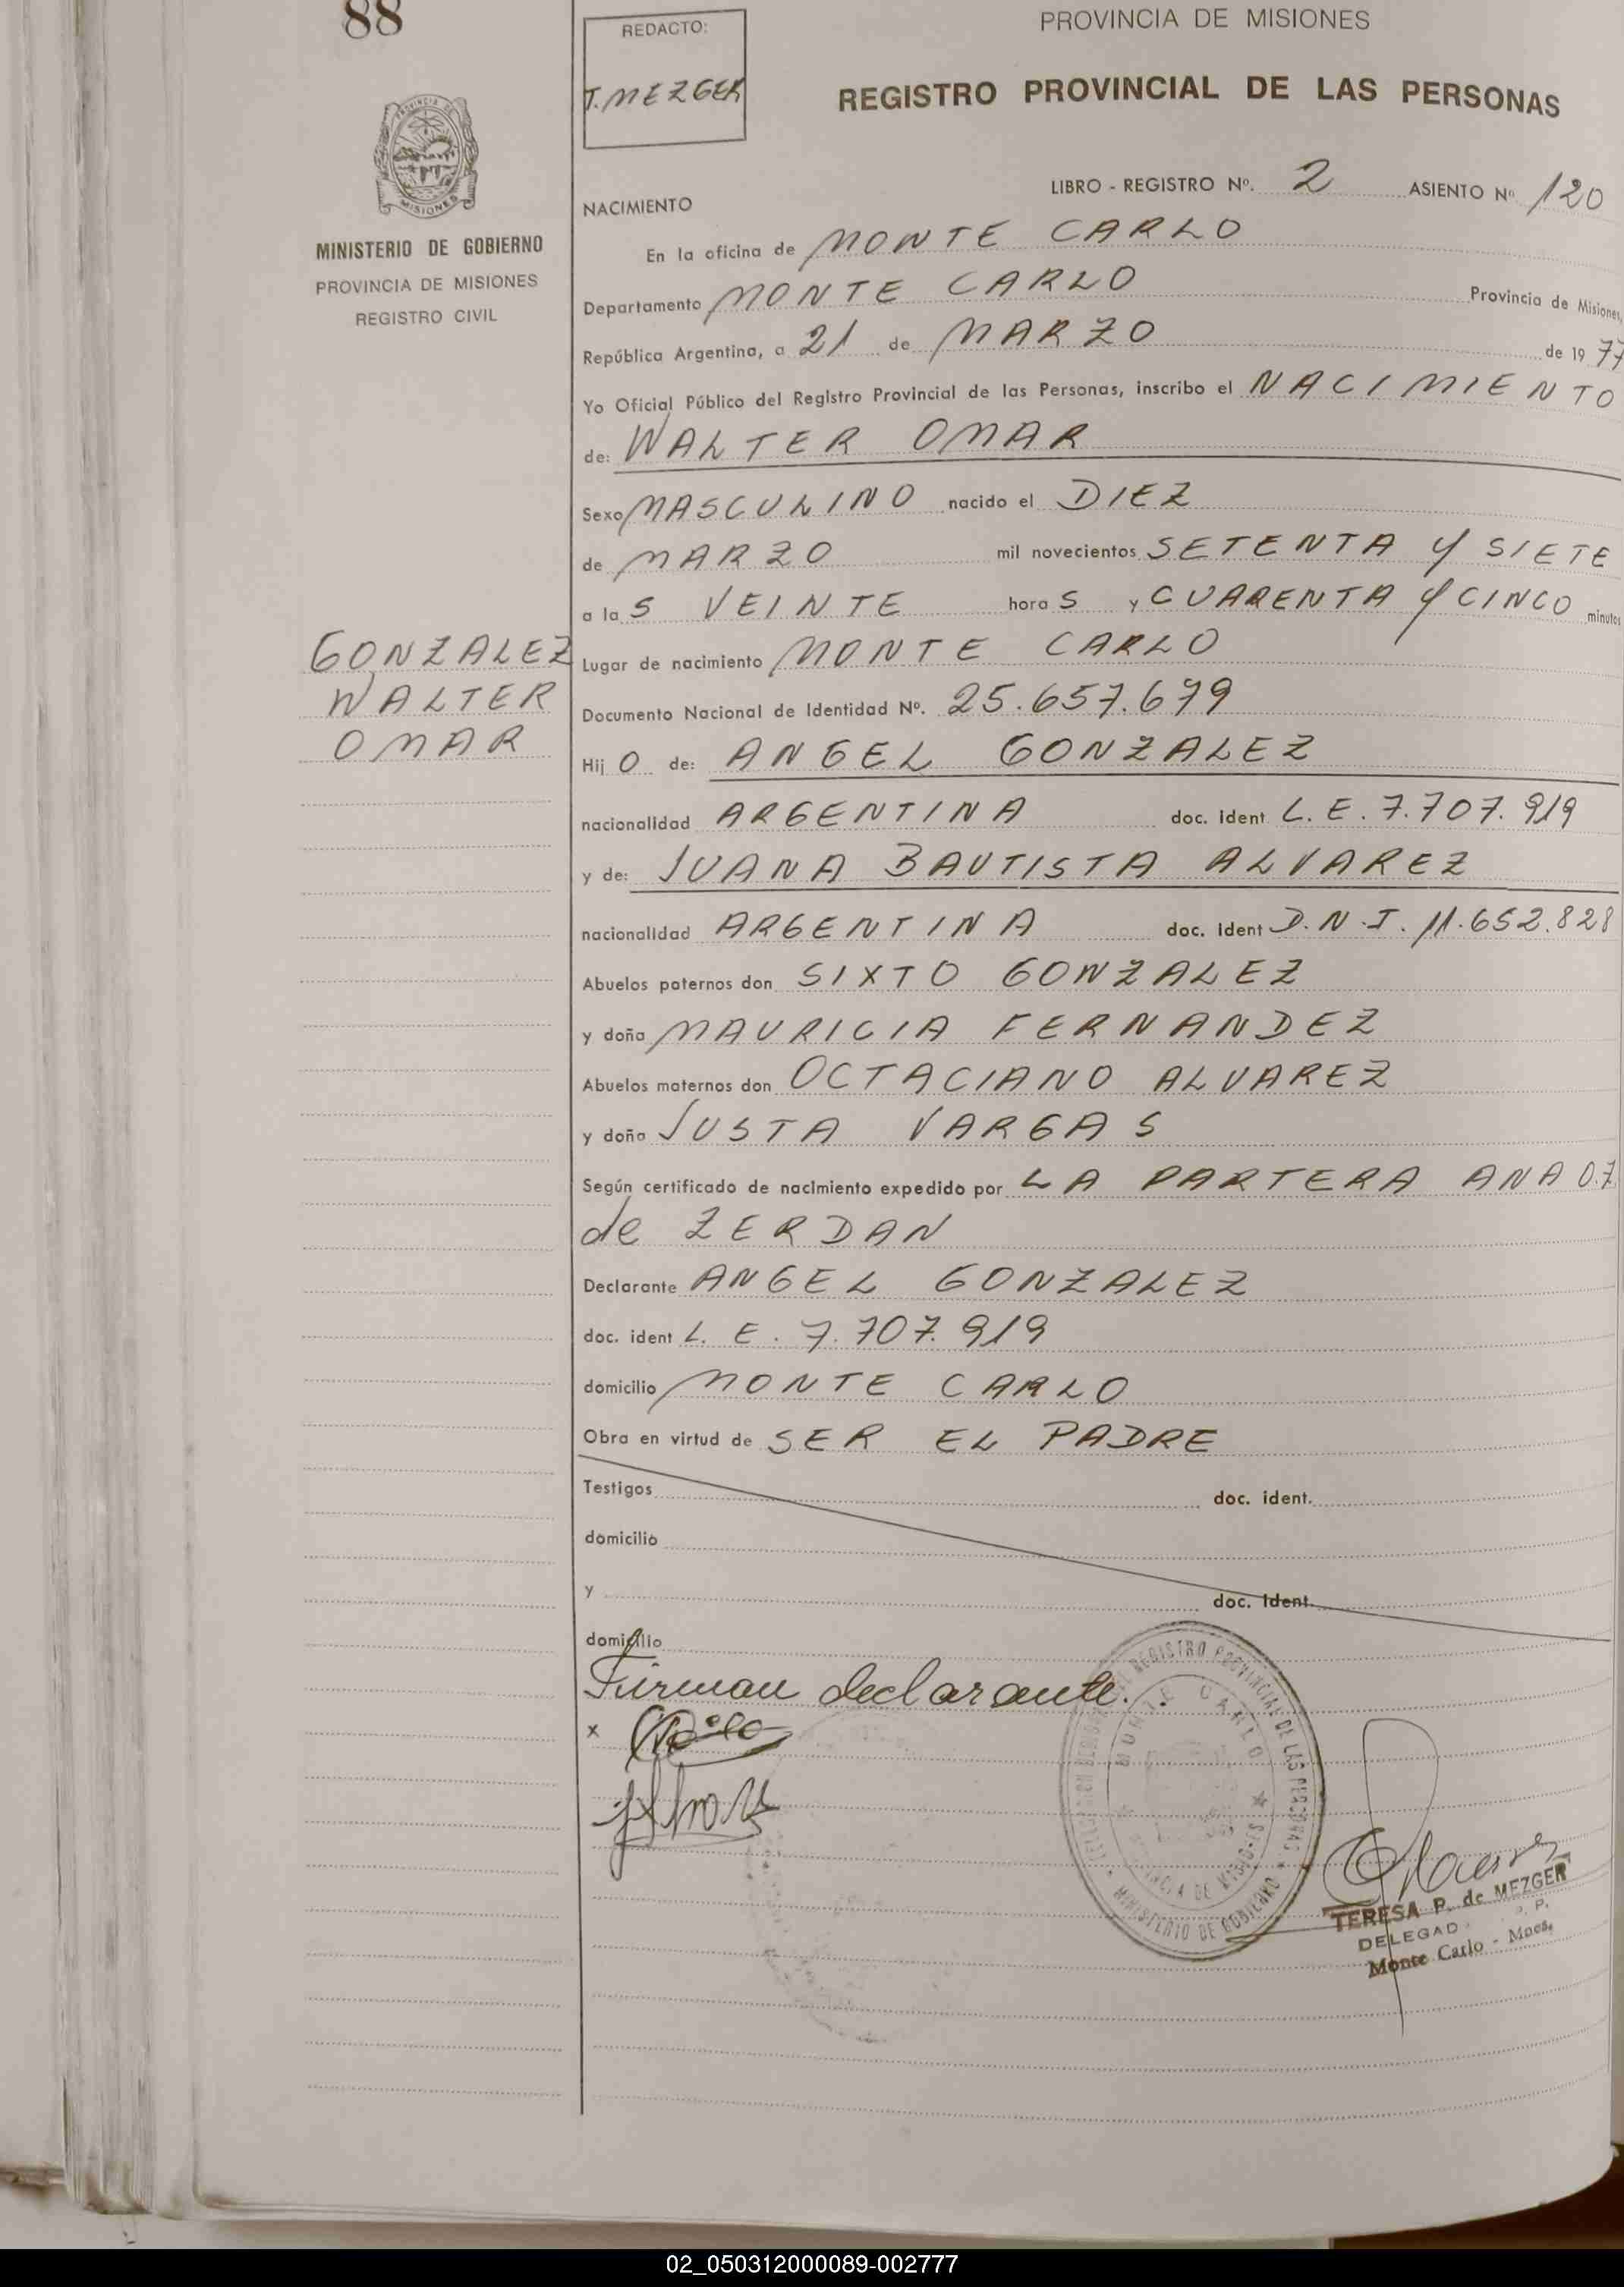 88
REDACTO:
T. MEZGER
PROVINCIA DE MISIONES
REGISTRO PROVINCIAL DE LAS PERSONAS
MISIONES
MINISTERIO DE GOBIERNO
PROVINCIA DE MISIONES
REGISTRO CIVIL
LIBRO - REGISTRO Nº. 2 ASIENTO Nº 120
NACIMIENTO
En la oficina de MONTE CARLO
Departamento MONTE CARLO Provincia de Misiones,
República Argentina, a 21 de MARZO de 1977
Yo Oficial Público del Registro Provincial de las Personas, inscribo el NACIMIENTO
de: WALTER OMAR
Sexo MASCULINO nacido el DIEZ
de MARZO mil novecientos SETENTA Y SIETE
a las VEINTE horas y CUARENTA Y CINCO minutos
GONZALEZ
WALTER
OMAR
Lugar de nacimiento MONTE CARLO
Documento Nacional de Identidad Nº. 25.657.679
Hijo de: ANGEL GONZALEZ
nacionalidad ARGENTINA doc. ident L.E. 7.707.919
y de: JUANA BAUTISTA ALVAREZ
nacionalidad ARGENTINA doc. ident D.N.I. 11.652.828
Abuelos paternos don SIXTO GONZALEZ
y doña MAURICIA FERNANDEZ
Abuelos maternos don OCTACIANO ALVAREZ
y doña JUSTA VARGAS
Según certificado de nacimiento expedido por LA PARTERA ANA O.Z
de ZERDAN
Declarante ANGEL GONZALEZ
doc. ident L.E. 7.707.919
domicilio MONTE CARLO
Obra en virtud de SER EL PADRE
Testigos doc. ident.
domicilio
y doc. ident.
domicilio
Firman declarante.
x
REGISTRO PROVINCIAL DE LAS PERSONAS
MONTE CARLO
MINISTERIO DE GOBIERNO
TERESA P. de MEZGER
DELEGAD P.
Monte Carlo - Mnes.
02_050312000089-002777